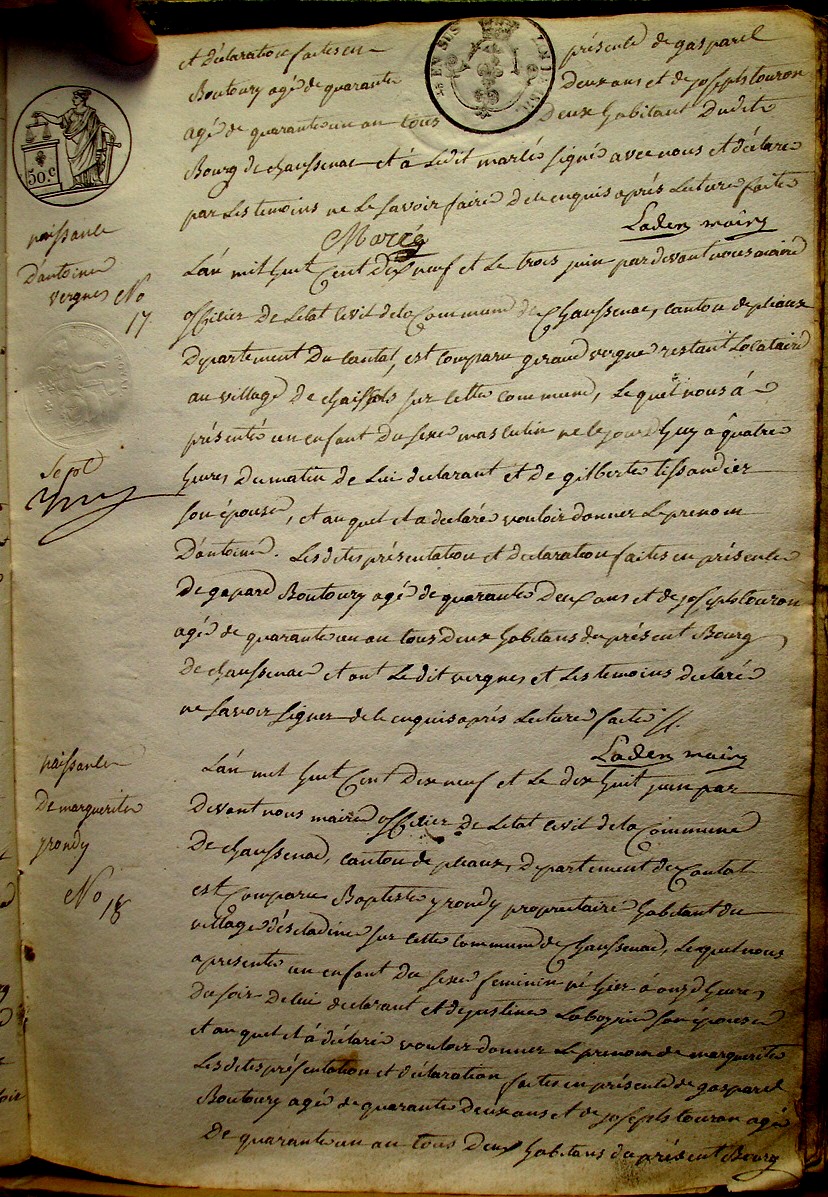 et déclaration faites en présence de gaspard
Boutoury agé de quarante deux ans et de joseph touron
agé de quarante un an tous deux habitant dudit
Bourg de chaussenac et à Ledit marlé signé avec nous et déclaré
par Les temoins ne Le savoir faire de ce enquis après Lecture faite
Laden maire
50.c
naissance
d'antoine
vergnes No
17
L'an mil huit Cent Dix neuf et Le trois juin par devant nous maire
officier De Letat Civil de la Commune de Chaussenac, canton de pleaux
Departement Du Cantal, est comparu geraud vergne restant Locataire
au village De chaissols sur cette commune, Lequel nous à
présenté un enfant Du sexe masculin né le jourd'huy à quatre
heures Du matin de Lui declarant et De gilberte tissandier
son épouse, et auquel il a declaré vouloir donner Le prenom
D'antoine. Les dites présentation et declaration faites en présence
De gapard Boutoury agé de quarante Deux ans et de joseph touron
agé de quarante un an tous Deux habitans du présent Bourg
de chaussenac et ont Le dit vergnes et Les temoins declaré
ne savoir signer de ce enquis après Lecture faite
Laden maire
sept
naissance
De marguerite
yrondy
No
18
L'an mil huit Cent Dix neuf et Le dix huit juin par
Devant nous maire officier De Letat Civil de la Commune
De chaussenac, canton de pleaux, Departement du Cantal
est Comparu Baptiste yrondy proprietaire habitant du
village d'escladine sur cette commune de Chaussenac, Lequel nous
a presenté un enfant Du sexe feminin né hier à onze heures
Du soir De Lui declarant et de justine Laboyrie son épouse
et auquel il à déclaré vouloir donner Le prenom de marguerite
Les dites présentation et déclaration faites en présence de gaspard
Boutoury agé de quarante deux ans et de joseph touron agé
De quarante un an tous Deux habitans du présent Bourg